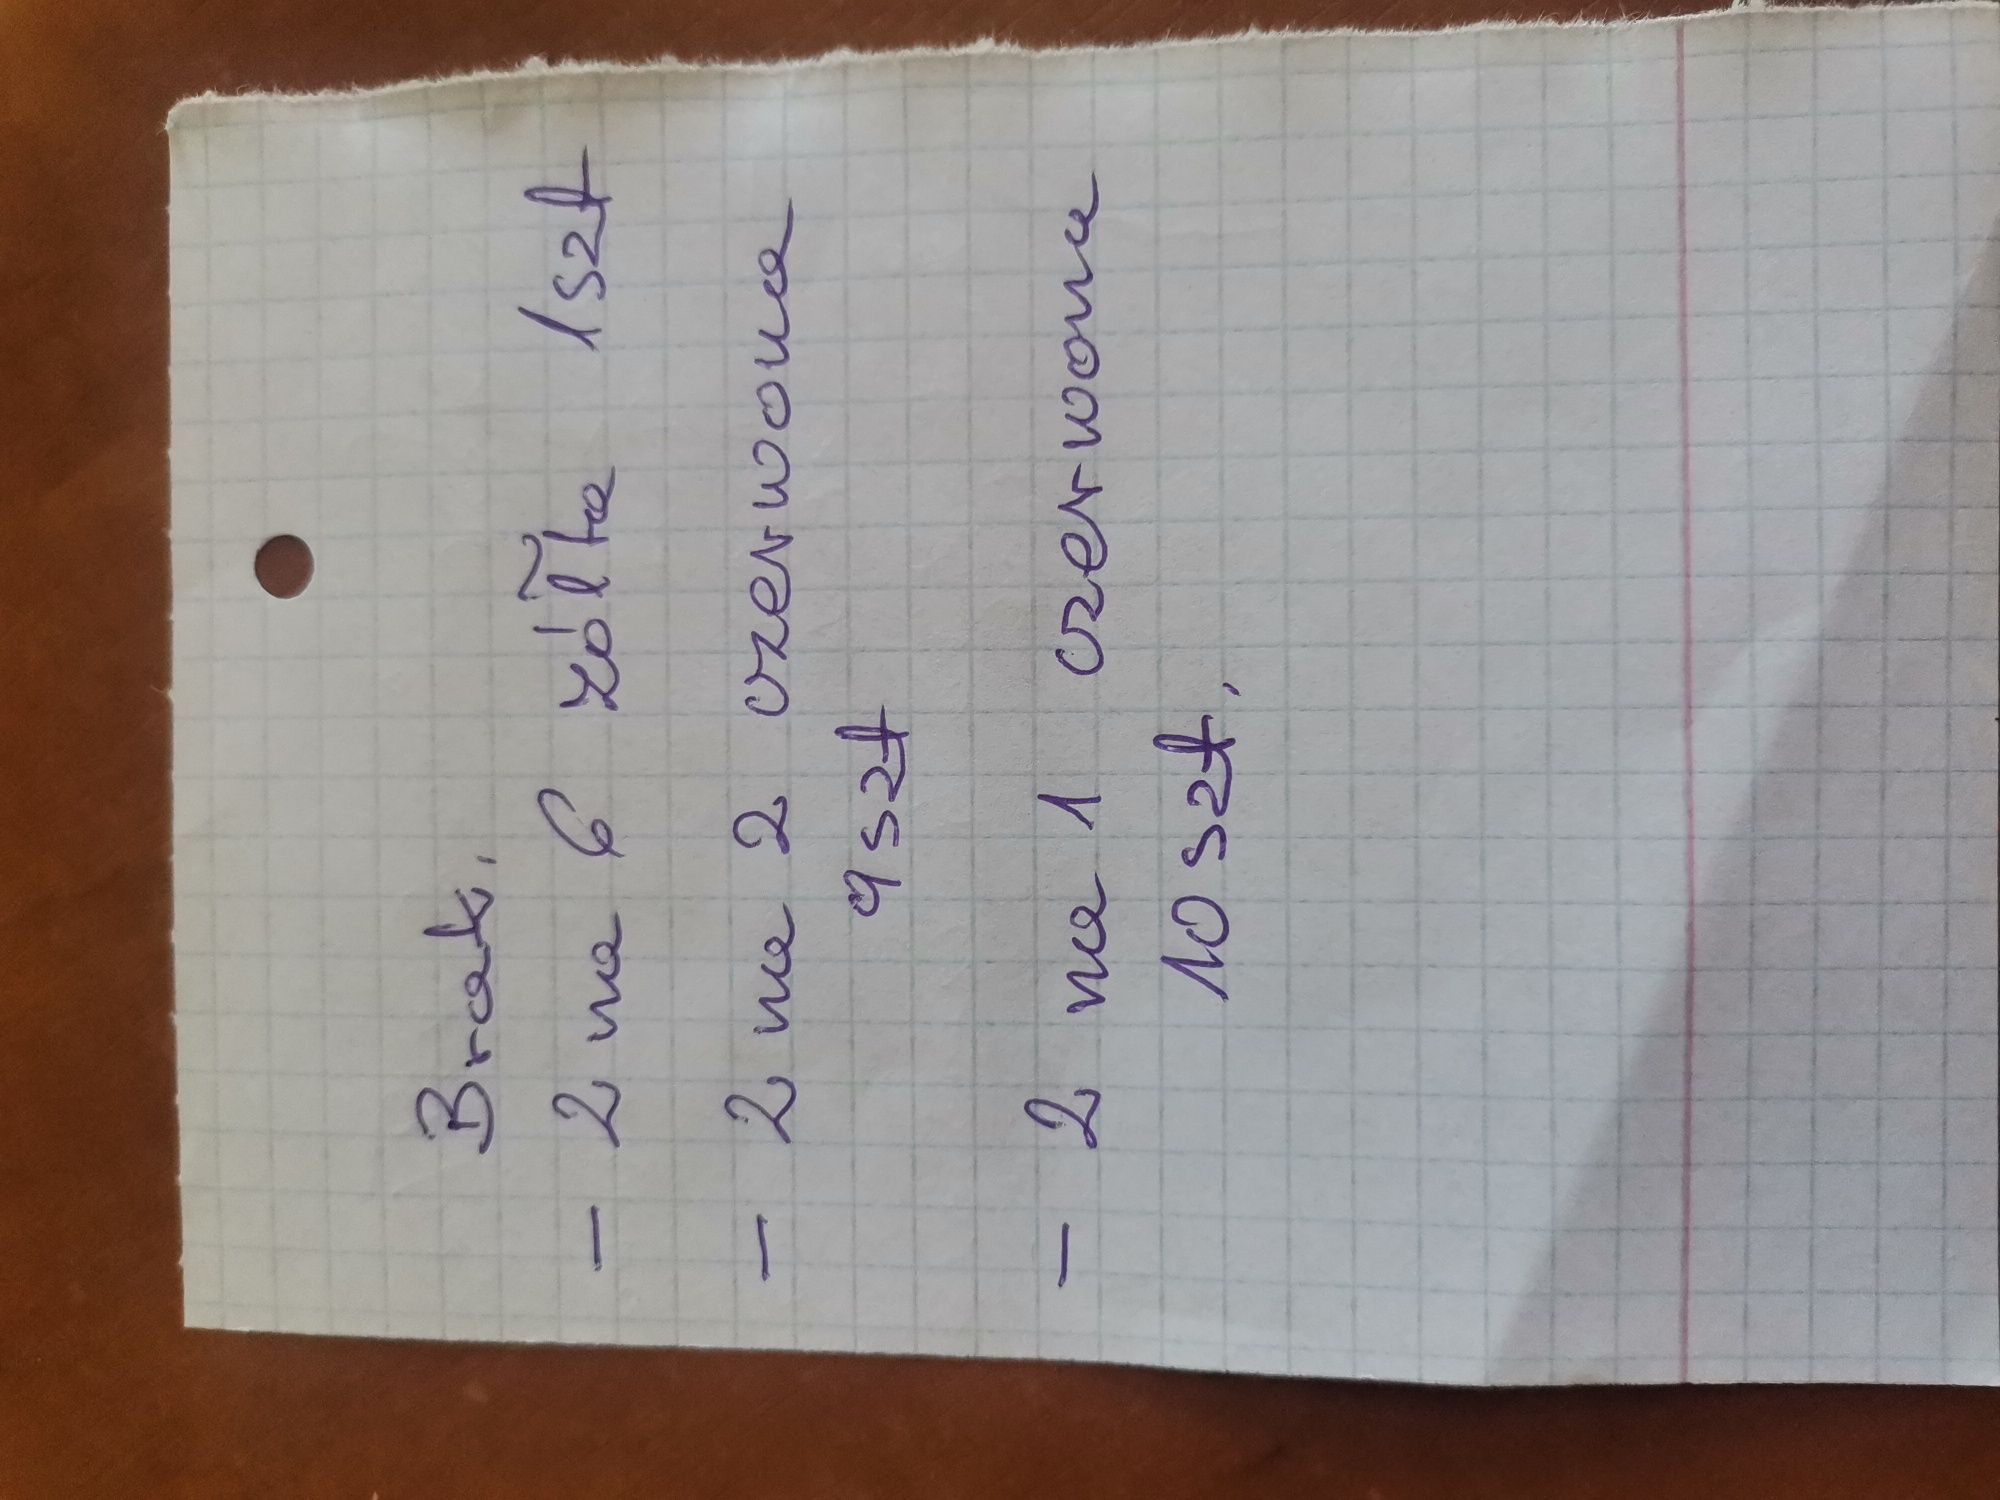 Brak.
- 2 na 6 żółta 1 szt
- 2 na 2 czerwona
9 szt
- 2 na 1 czerwona
10 szt.